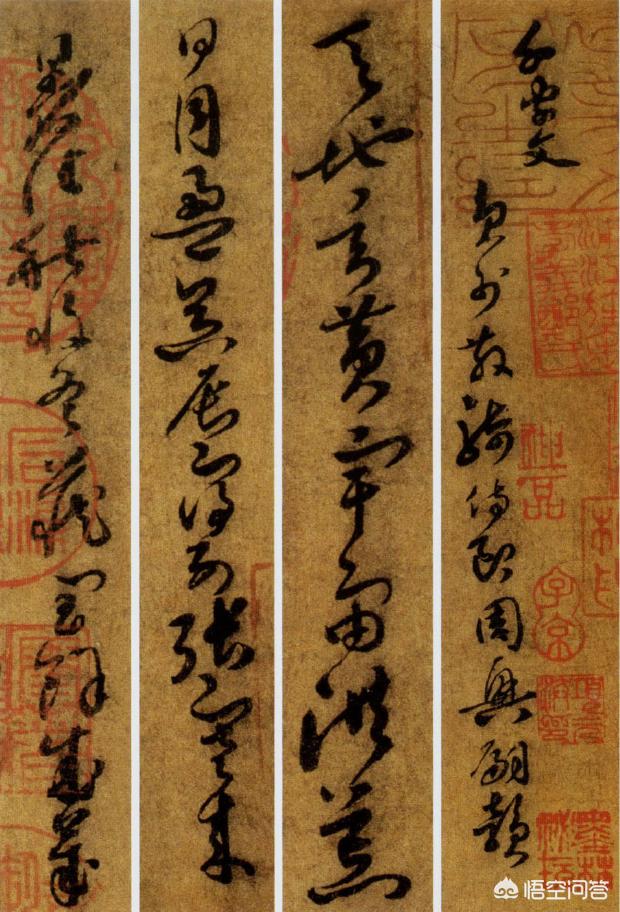 千字文
員外散騎侍郎周興嗣韻
天地玄黃宇宙洪荒
日月盈昃辰宿列張寒來
暑往秋收冬藏閏餘成歲
神品
子京
悟空问答